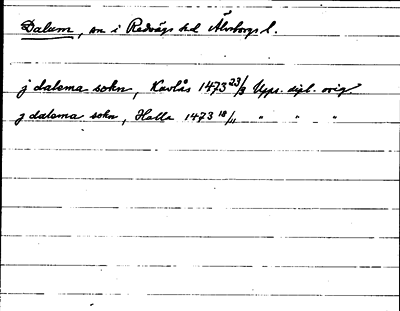 Dalum, sn i Redvägs hd Älvsborgs l.
j dalema sokn, Kavlås 1473 23/3 Upps. dipl. orig.
j dalema sokn, Halla 1473 18/11 " " "